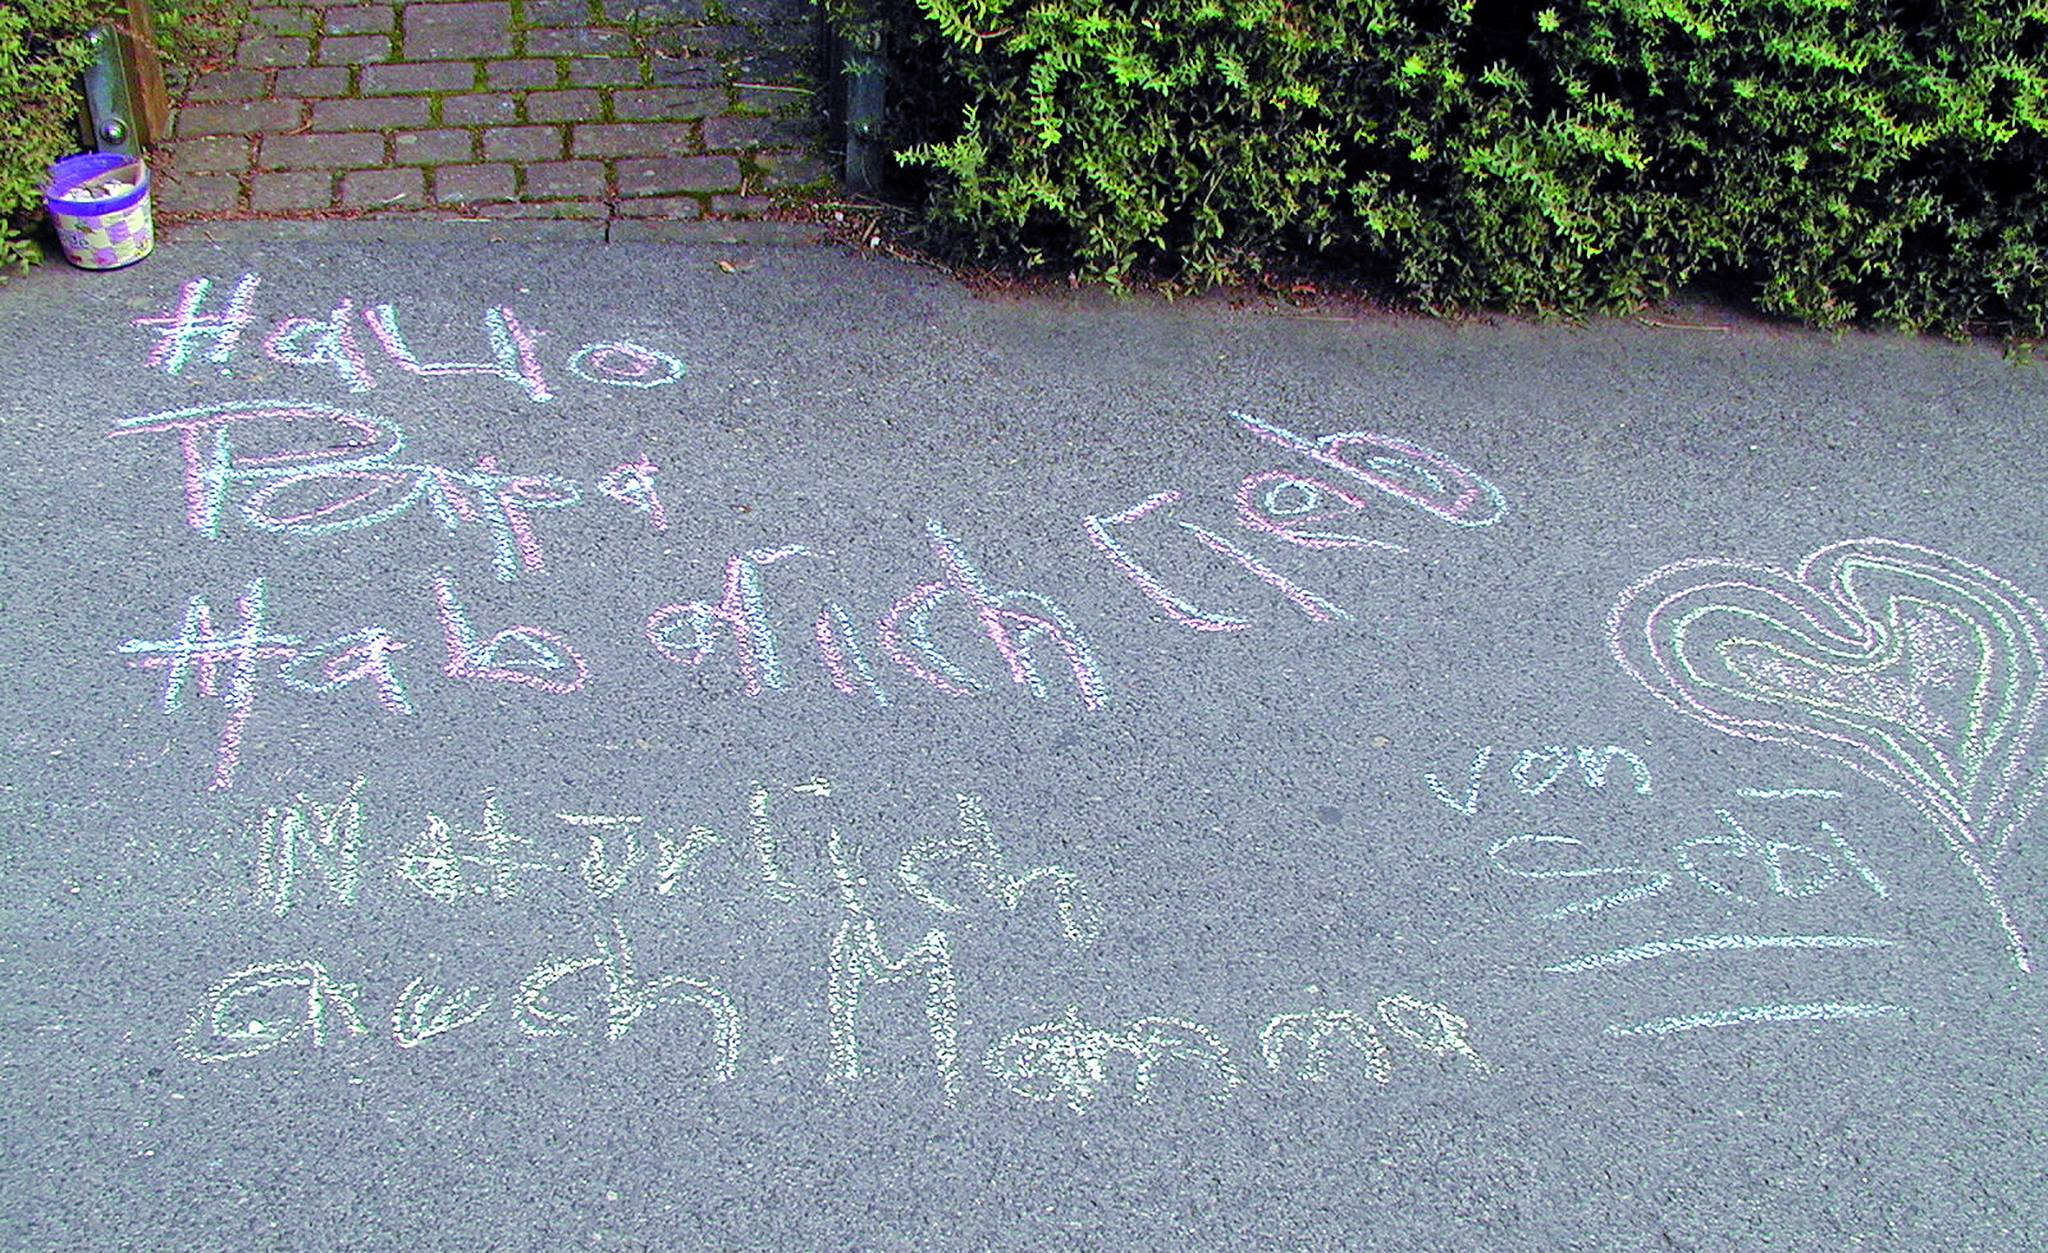 Hallo
Papa
Hab dich Lieb
Natürlich
auch Mamma
von